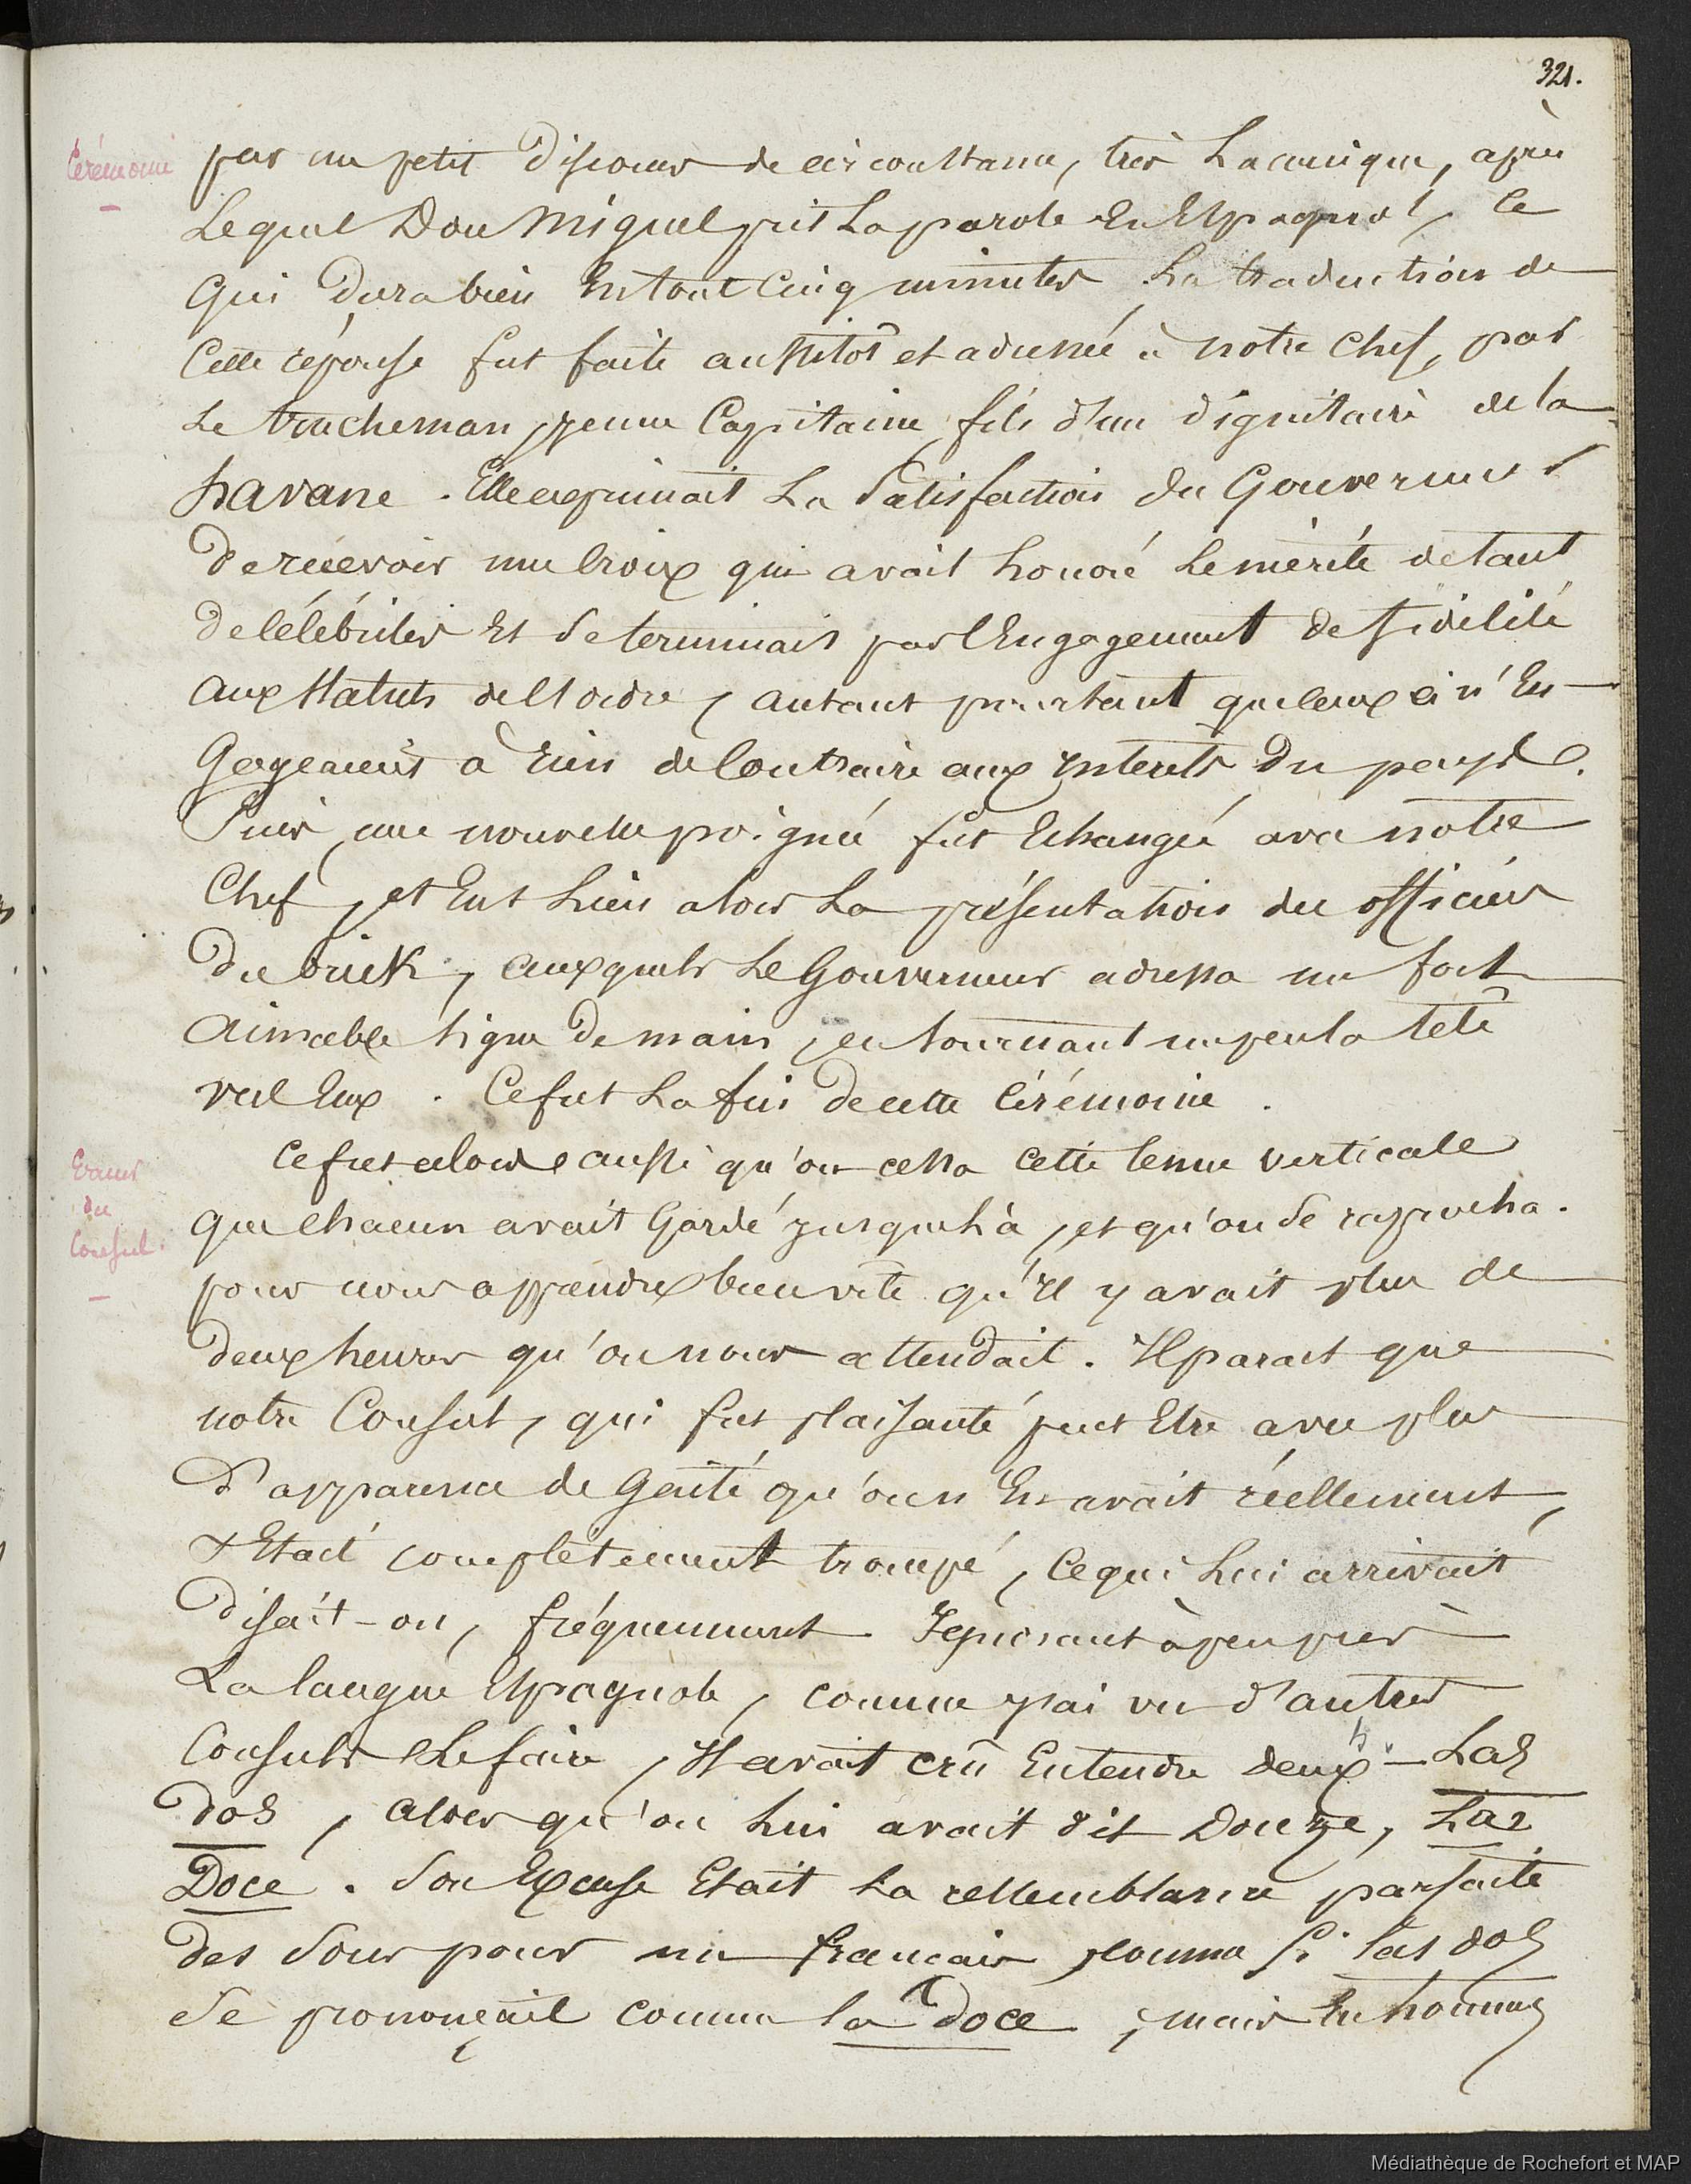 321.
Cérémonie
par un petit discours de circonstance, très Laconique, après
Lequel Don Miguel prit La parole En Espagnol, Ce
Qui dura bien En tout Cinq minutes. La traduction de
Cette réponse fut faite aussitôt et adressée à notre Chef, par
Le trucheman, jeune Capitaine, fils d'un dignitaire de la
havane. Elle exprimait La Satisfaction du Gouverneur
De recevoir une Croix qui avait honoré Le mérite de tant
De Célébrités Et Se terminait par l'Engagement de fidélité
Aux Statuts de l'ordre, autant pourtant que Ceux ci n'En-
Gageaient à Rien de Contraire aux Interets Du pays.
Puis, une nouvelle poignée fut Echangée avec notre
Chef, et Eut Lieu alors La présentation des officiers
Du brick, auxquels Le Gouverneur adressa un fort
Aimable Signe De main, en tournant un peu la tete
vers Eux. Ce fut La fin de cette Cérémonie.
Erreur
du
Consul.
Ce fut alors aussi qu'on cessa Cette tenue verticale
Que Chacun avait Gardé jusques là, et qu'on Se rapprocha.
pour nous apprendre bien vite qu'Il y avait plus de
Deux heures qu'on nous attendait. Il parait que
notre Consul, qui fut plaisanté peut Etre avec plus
D'apparence de Gaité qu'on n'En avait réellement,
S'Etait complètement trompé, Ce qui Lui arrivait
Disait-on, fréquemment. Ignorant à peu près
La langue Espagnole, comme j'ai vu d'autres
Consuls Le faire, Il avait crû Entendre deux h — Las
Dos, Alors qu'on Lui avait dit Douze, Las
Doce. Son Excuse Etait La ressemblance parfaite
Des Sons pour un francais, comme Si las dos
Se prononçait comme la Doce, mais En hommes
Médiathèque de Rochefort et MAP